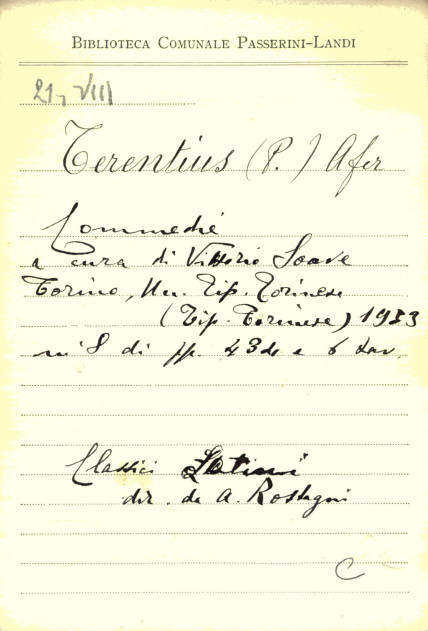 BIBLIOTECA COMUNALE PASSERINI-LANDI
21, VIII
Terentius (P.) Afer
Commedie
a cura di Vittorio Soave
Torino, Un. Tip. Torinese
(Tip. Torinese) 1953
in 8 di pp. e 6 tav.
Classici Latini
dir. da A. Rostagni
C